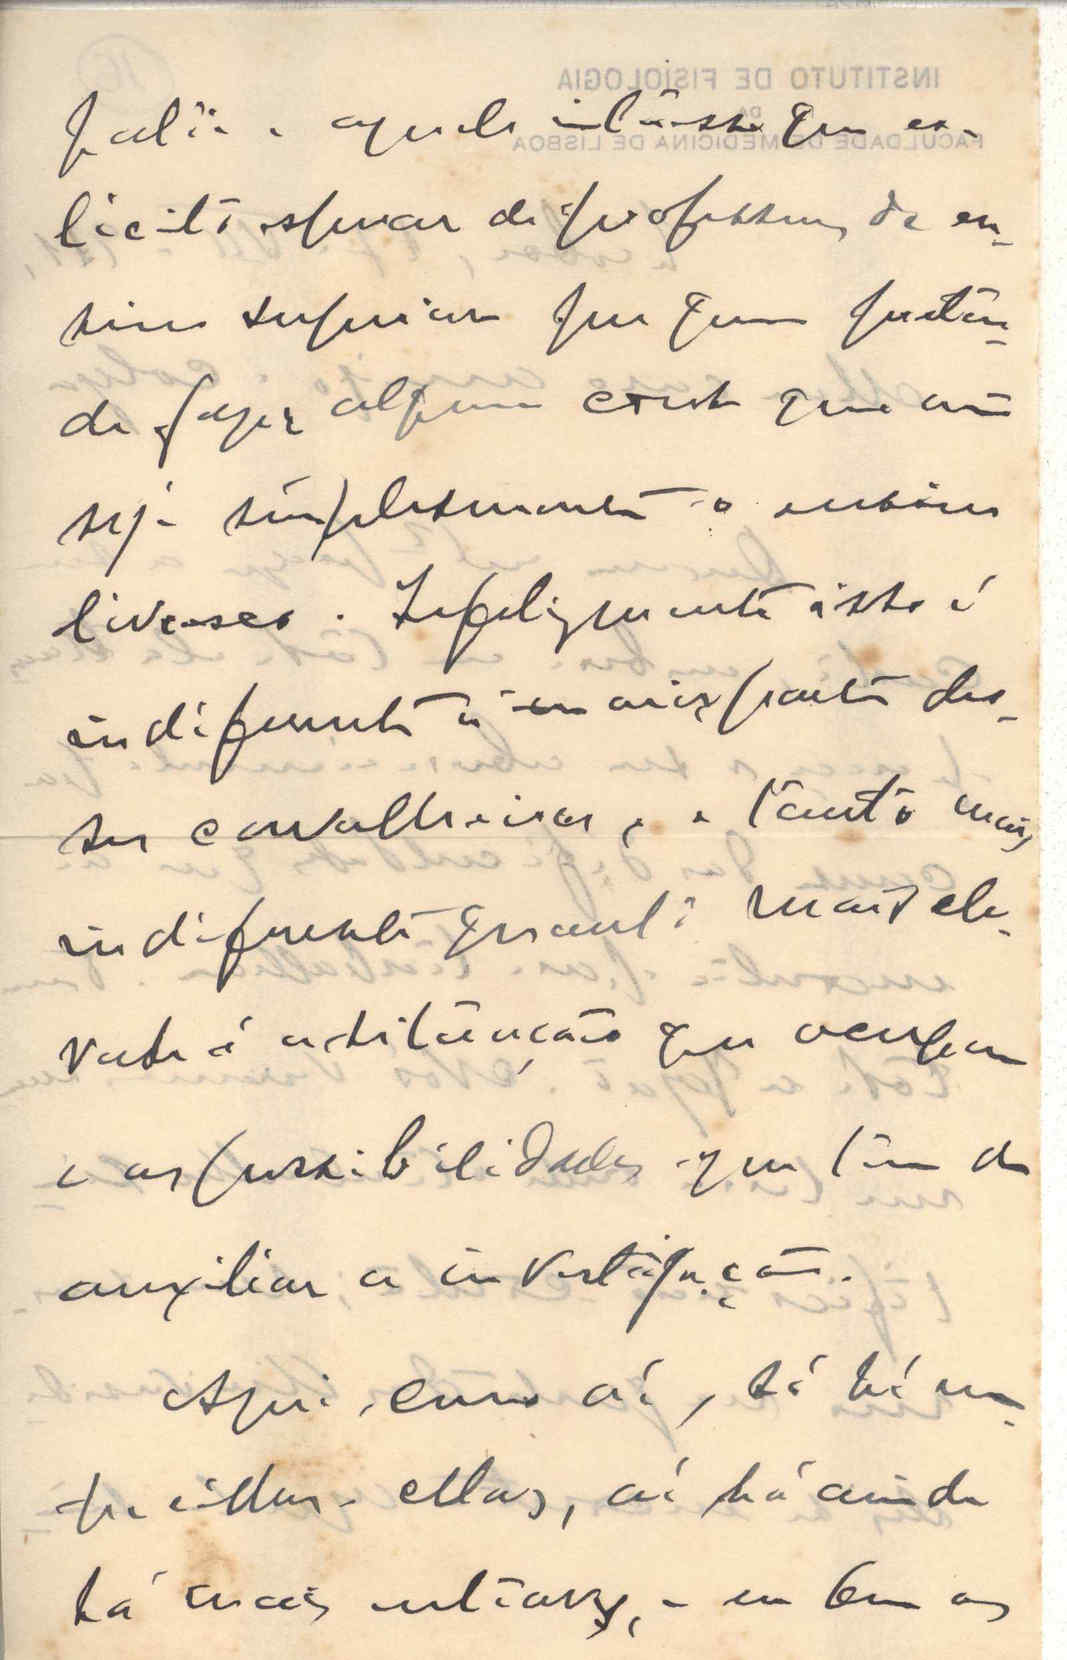 INSTITUTO DE FISIOLOGIA
DA
FACULDADE DE MEDICINA DE LISBOA
patia e aquele interesse que es
licito esperar de professores de en-
sino superior por quem preten-
de fazer alguma coisa que não
seja simplesmente o ensino
livresco. Infelizmente isto é
indiferente á maior parte des-
ses cavalheiros, e tanto mais
indiferente quanto mais ele-
vada é a situação que ocupam
e as possibilidades que têm de
auxiliar a investigação.
Aqui, como aí, só há em-
pecilhos. Mas, aí há ainda
há mais entraves, e eu bem os